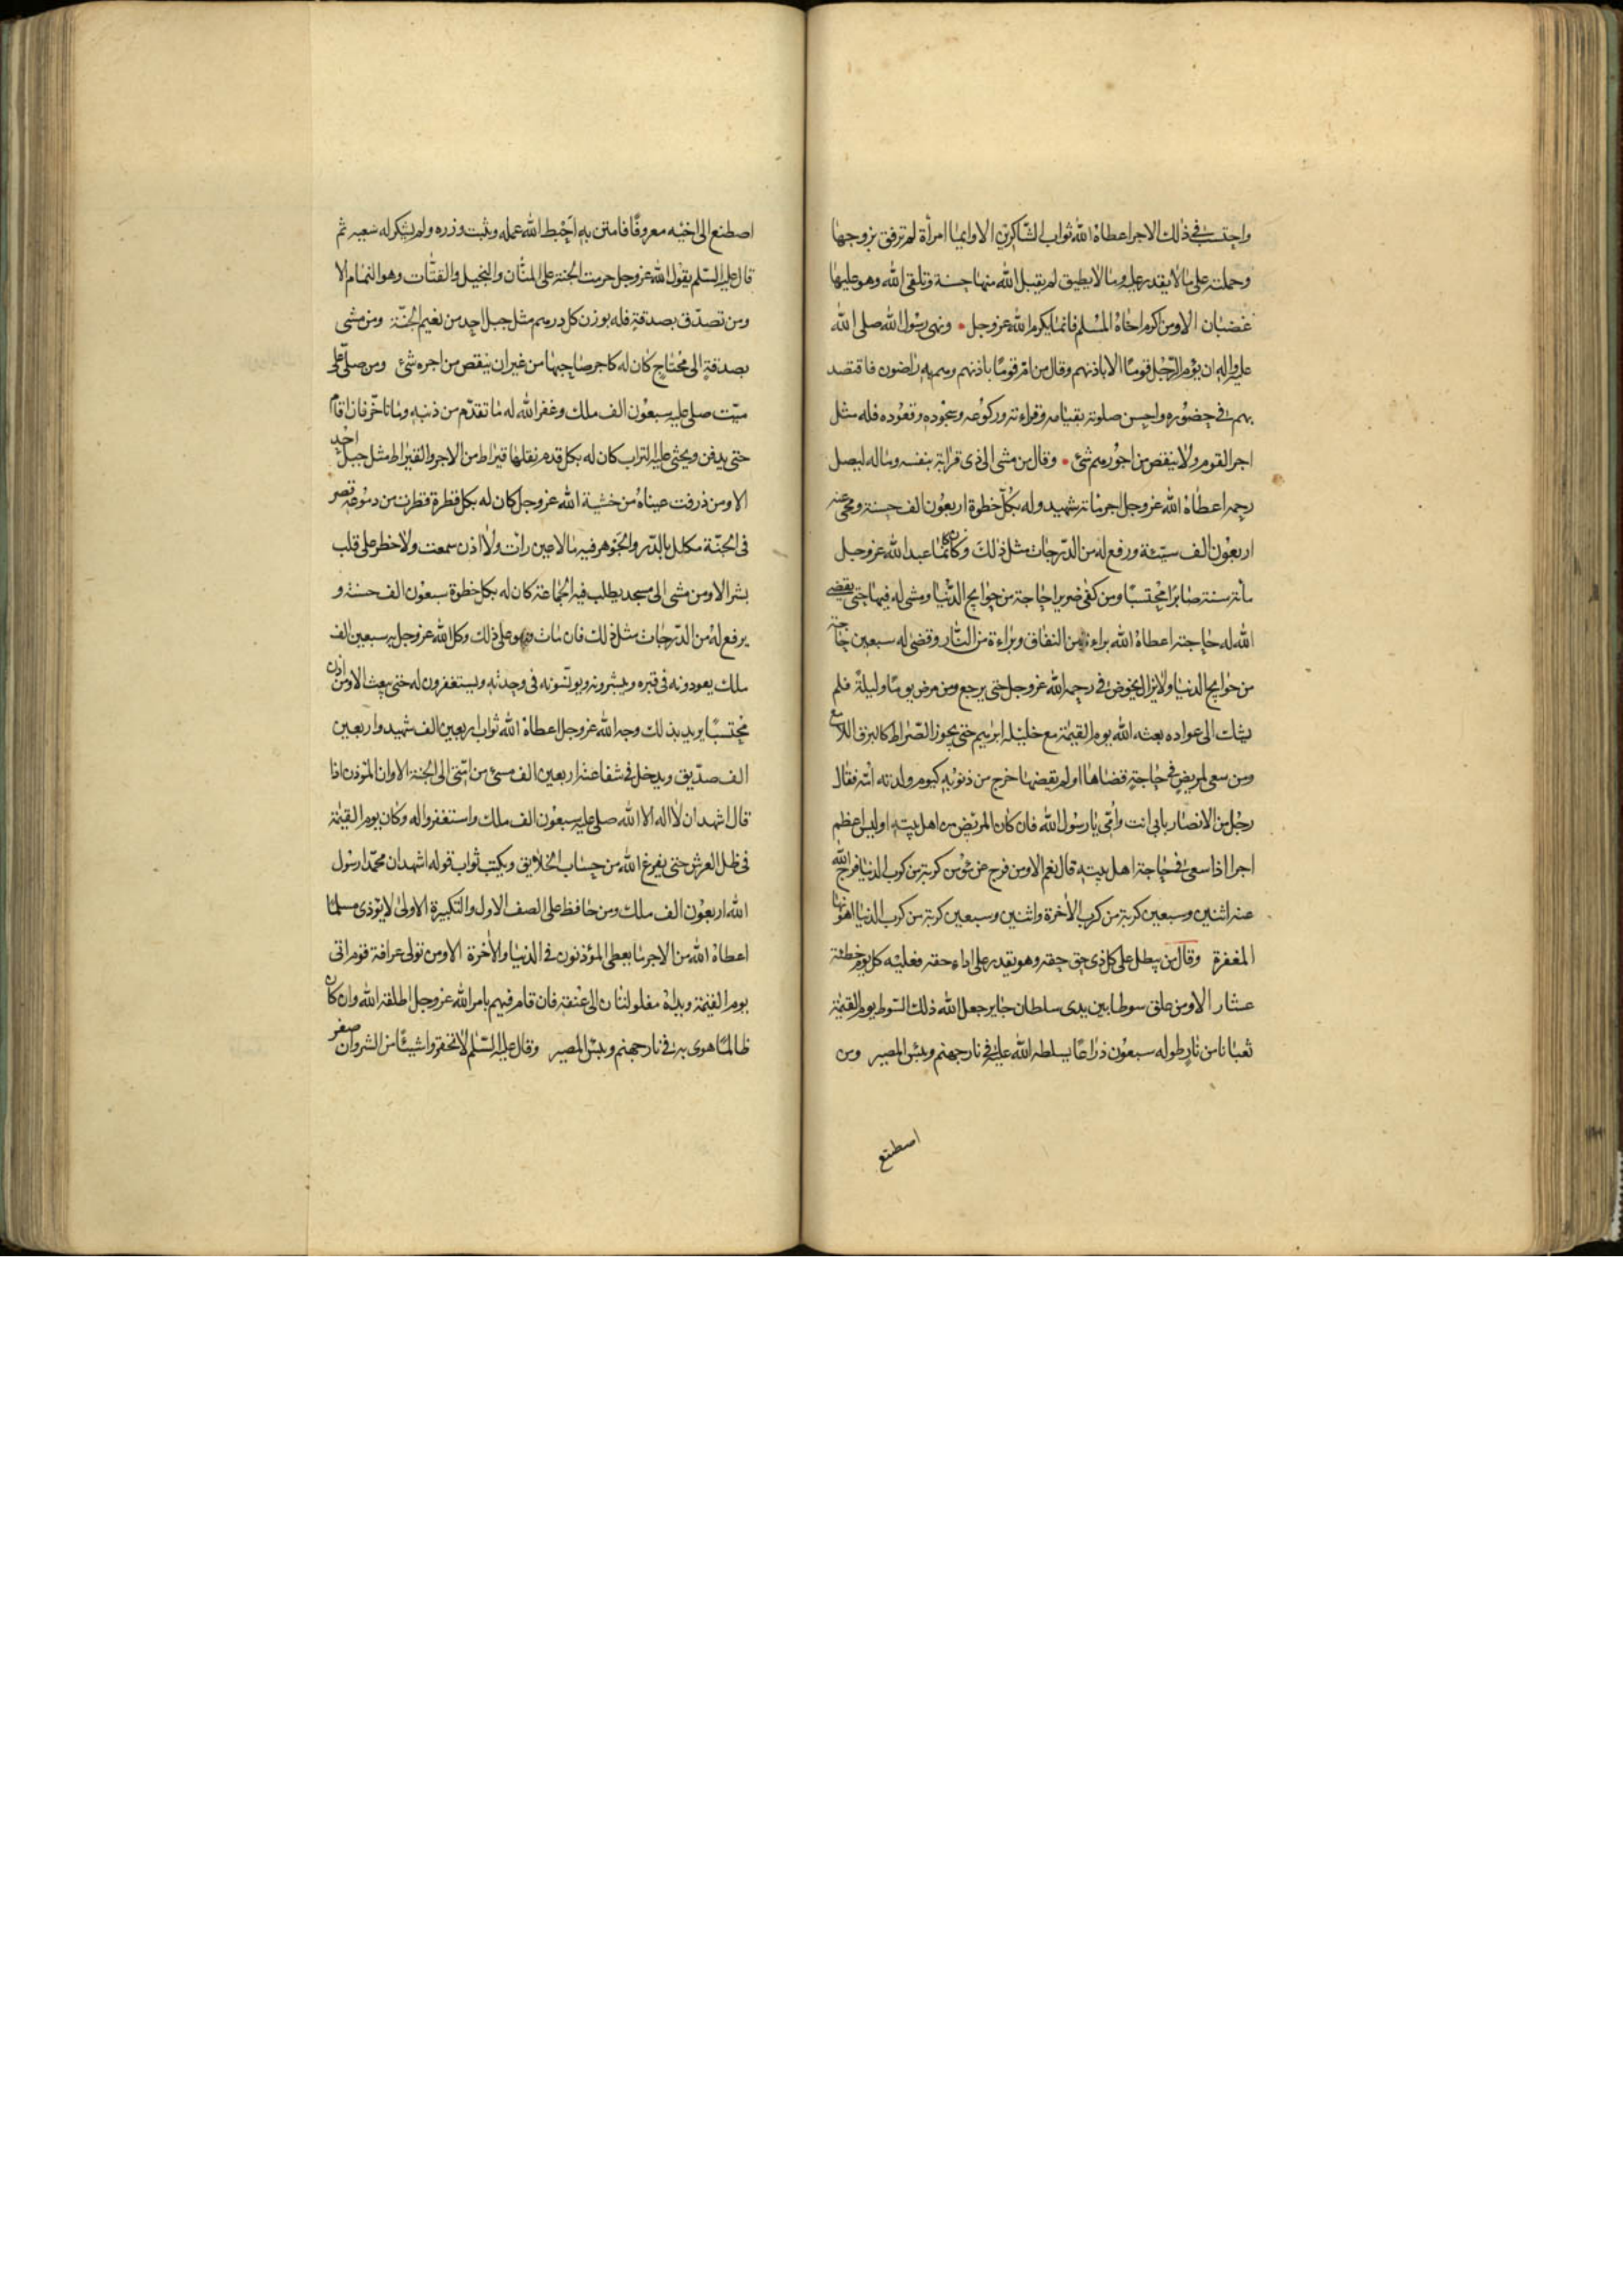 واحتسب في ذلك الاجر اعطاه الله ثواب الشاكرين الا وايما امرأة لم ترفق بزوجها
وحملته على ما لا يقدر عليه وما لا يطيق لم يقبل الله منها حسنة وتلقى الله وهو عليها
غضبان الا ومن اكرم اخاه المسلم فانما يكرم الله عز وجل ونهى رسول الله صلى الله
عليه واله ان يؤم الرجل قوما الا باذنهم وقال من ام قوما باذنهم وهم به راضون فاقتصد
بهم في حضوره واحسن صلوته بقيامه وقراءته وركوعه وسجوده وقعوده فله مثل
اجر القوم ولا ينقص من اجورهم شئ وقال من مشى الى ذي قرابة بنفسه وماله ليصل
رحمه اعطاه الله عز وجل اجر مائة شهيد وله بكل خطوة اربعون الف حسنة ومحى عنه
اربعون الف سيئة ورفع له من الدرجات مثل ذلك وكان كانما عبد الله عز وجل
مائة سنة صابرا محتسبا ومن كفى ضريرا حاجة من حوايج الدنيا ومشى له فيها حتى يقضى
الله له حاجته اعطاه الله براءة من النفاق وبراءة من النار وقضى له سبعين حاجة
من حوايج الدنيا ولا يزال يخوض في رحمة الله عز وجل حتى يرجع ومن مرض يوما وليلة فلم
يشك الى عواده بعثه الله يوم القيمة مع خليله ابرهيم حتى يجوز الصراط كالبرق اللامع
ومن سعى لمريض في حاجة قضاها او لم يقضها خرج من ذنوبه كيوم ولدته امه فقال
رجل من الانصار بابي انت وامي يا رسول الله فان كان المريض من اهل بيته اوليس اعظم
اجرا اذا سعى في حاجة اهل بيته قال نعم الا ومن فرج عن مؤمن كربة من كرب الدنيا فرج الله
عنه اثنين وسبعين كربة من كرب الاخرة واثنين وسبعين كربة من كرب الدنيا اهونها
المغفرة وقال من يبطل على كل ذي حق حقه وهو يقدر على اداء حقه فعليه كل يوم خطيئة
عشار الا ومن علق سوطا بين يدي سلطان جاير جعل الله ذلك السوط يوم القيمة
ثعبانا من نار طوله سبعون ذراعا يسلطه الله عليه في نار جهنم وبئس المصير ومن
اصطنع
اصطنع الى اخيه معروفا فامتن به احبط الله عمله وثبت وزره ولم يشكر له سعيه ثم
قال عليه السلم يقول الله عز وجل حرمت الجنة على المنان والبخيل والقتات وهو النمام الا
ومن تصدق بصدقة فله بوزن كل درهم مثل جبل احد من نعيم الجنة ومن مشى
بصدقة الى محتاج كان له كاجر صاحبها من غير ان ينقص من اجره شئ ومن صلى على
ميت صلى عليه سبعون الف ملك وغفر الله له ما تقدم من ذنبه وما تاخر فان اقام
حتى يدفن ويحثى عليه التراب كان له بكل قدم نقلها قيراط من الاجر والقيراط مثل جبل احد
الا ومن ذرفت عيناه من خشية الله عز وجل كان له بكل قطرة قطرت من دموعه قصر
في الجنة مكلل بالدر والجوهر فيه ما لا عين رات ولا اذن سمعت ولا خطر على قلب
بشر الا ومن مشى الى مسجد يطلب فيه الجماعة كان له بكل خطوة سبعون الف حسنة و
يرفع له من الدرجات مثل ذلك فان مات وهو على ذلك وكل الله عز وجل به سبعين الف
ملك يعودونه في قبره ويبشرونه ويونسونه في وحدته ويستغفرون له حتى يبعث الا ومن اذن
محتسبا يريد بذلك وجه الله عز وجل اعطاه الله ثواب اربعين الف شهيد واربعين
الف صديق ويدخل في شفاعته اربعين الف مسئ من امتي الى الجنة الا وان المؤذن اذا
قال اشهد ان لا اله الا الله صلى عليه سبعون الف ملك واستغفروا له وكان يوم القيمة
في ظل العرش حتى يفرغ الله من حساب الخلايق ويكتب ثواب قوله اشهد ان محمدا رسول
الله اربعون الف ملك ومن حافظ على الصف الاول والتكبيرة الاولى لا يؤذي مسلما
اعطاه الله من الاجر ما يعطى المؤذنون في الدنيا والاخرة الا ومن تولى عرافة قوم اتى
يوم القيمة ويداه مغلولتان الى عنقه فان قام فيهم بامر الله عز وجل اطلقه الله وان كان
ظالما هوى به في نار جهنم وبئس المصير وقال عليه السلم لا تحقروا شيئا من الشر وان صغر